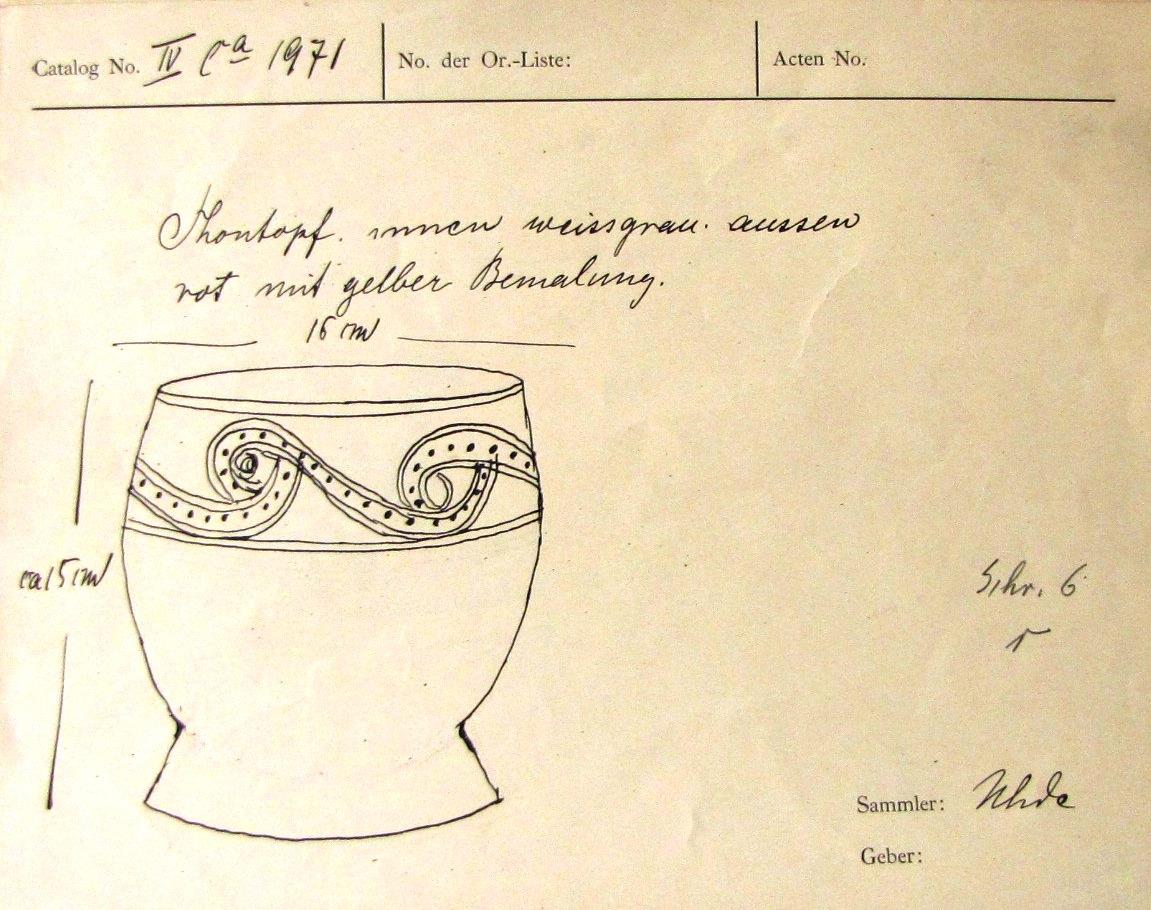 Catalog No. IV Ca 1971 No. der Or.-Liste: Acten No.
Thontopf. innen weissgrau. aussen
rot mit gelber Bemalung.
16 cm
ca 15 cm
Schr. 6
r
Sammler: Uhde
Geber: